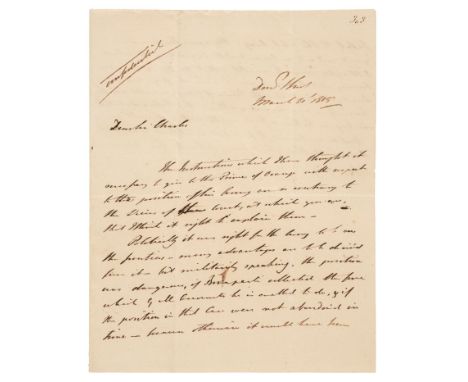 363
Confidential
Dow<sup>g</sup> Street
March 31<sup>st</sup> 1815
Dear Sir Charles
The Instructions which I have thought it
necessary to give to the Prince of Orange with respect
to the position of his Army are so contrary to
the Views of these Courts, at which you are,
that I think it right to explain them —
Politically it was right for the Army to be on
the frontiers — many advantages are to be derived
from it — but militarily speaking, the position
was dangerous, if Bonaparte collected the force
which by all Accounts he is enabled to do, & if
the position in that Case were not abandoned in
time — because otherwise it would have been